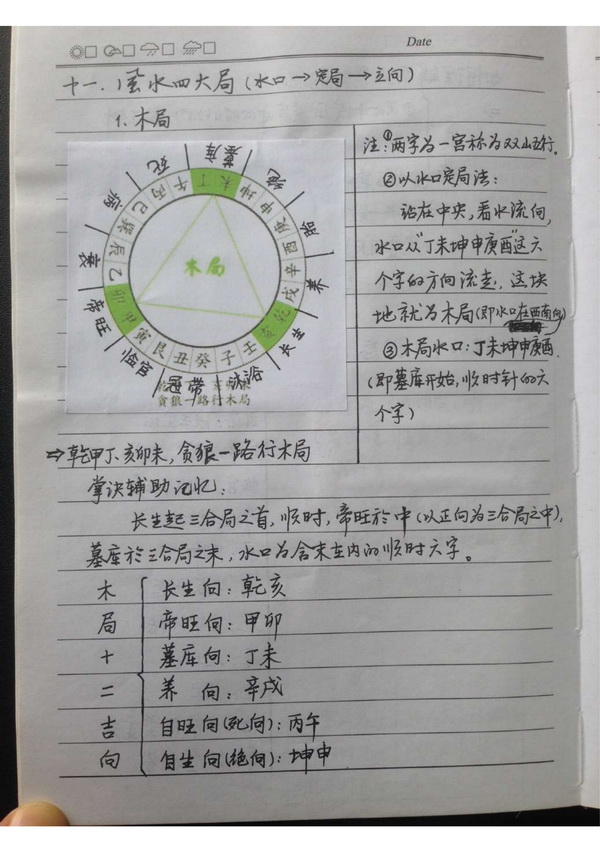 Date
十一.风水四大局(水口→定局→立向)
1.木局
注:①两字为一宫称为双山五行.
②以水口定局法:
站在中央,看水流向,
水口从"丁未坤申庚酉"这六
个字的方向流走,这块
地就为木局(即水口在西南向)
③木局水口:丁未坤申庚酉.
(即墓库开始,顺时针的六
个字)
死 墓库 绝
病 胎
衰 养
帝旺 长生
临官 冠带 沐浴
巳丙午丁未坤申庚酉辛戌乾亥壬子癸丑艮寅甲卯乙辰巽
木局
贪狼一路行木局
⇒乾甲丁、亥卯未,贪狼一路行木局
掌诀辅助记忆:
长生起三合局之首,顺时,帝旺於中(以正向为三合局之中),
墓库於三合局之末,水口为含末在内的顺时六字。
木局十二吉向
长生向:乾亥
帝旺向:甲卯
墓库向:丁未
养 向:辛戌
自旺向(死向):丙午
自生向(绝向):坤申